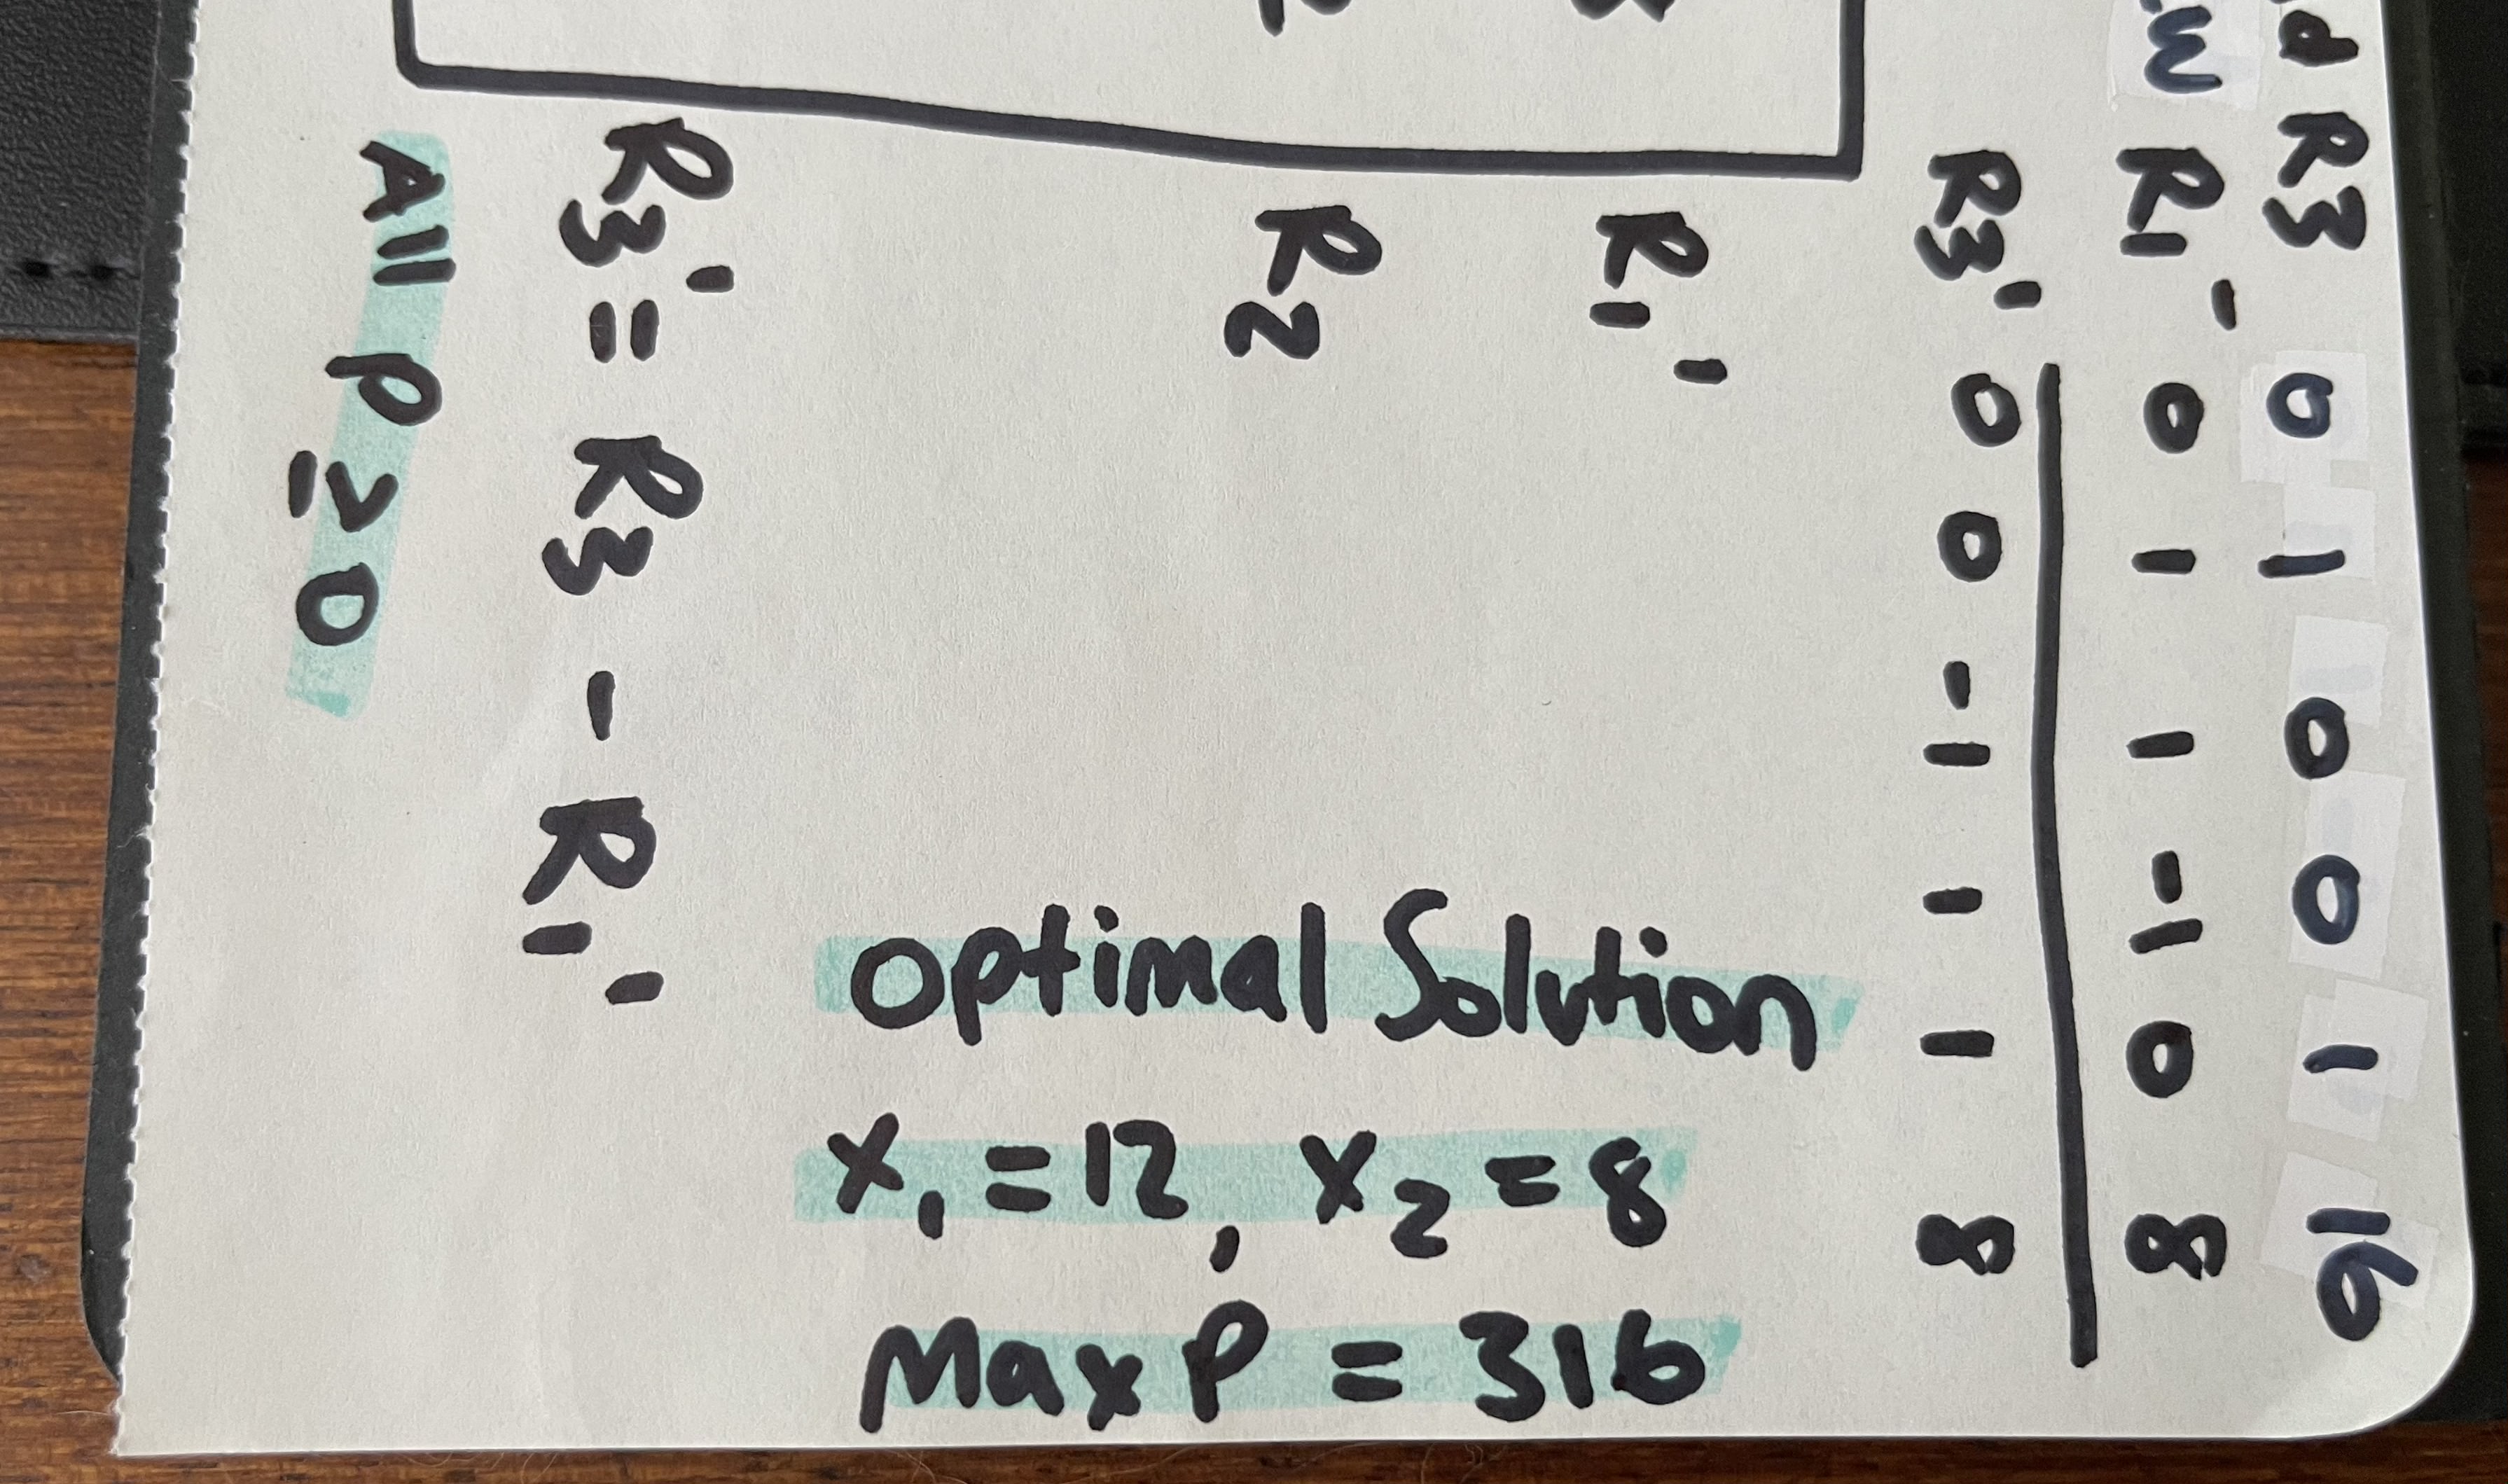 R3 0 1 0 0 1 16
R1 - 0 1 1 -1 0 8
R3' 0 0 -1 1 1 8
R1'
R2
R3' = R3 - R1'
All P ≥ 0
Optimal Solution
x₁ = 12, x₂ = 8
Max P = 316